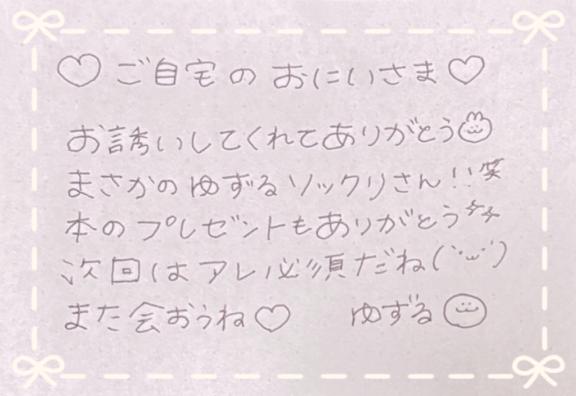 ♡ご自宅のおにいさま♡
お誘いしてくれてありがとう
まさかのゆずるソックリさん!!笑
本のプレゼントもありがとう
次回はアレ必須だね(˙ω˙)
また会おうね♡ ゆずる